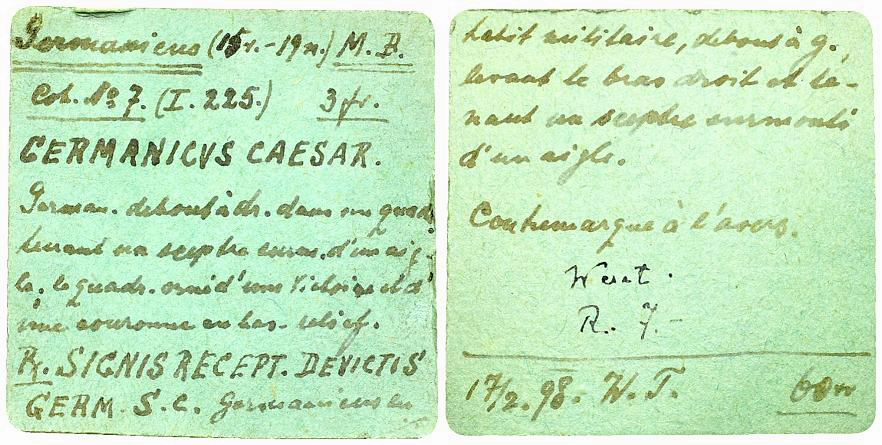 Germanicus (15v.-19n.) M. B.
Coh. No 7. (I. 225.) 3 fr.
GERMANICVS CAESAR.
German. debout à dr. dans un quad.
tenant un sceptre surm. d'un aig-
le, le quadr. orné d'une Victoire et d'
une couronne en bas-relief.
Rx. SIGNIS RECEPT. DEVICTIS
GERM. S. C. Germanicus en
habit militaire, debout à g.
levant le bras droit et te-
nant un sceptre surmonté
d'un aigle.
Contremarque à l'avers.
Wert.
R. 7.-
17/2. 98. H. T.